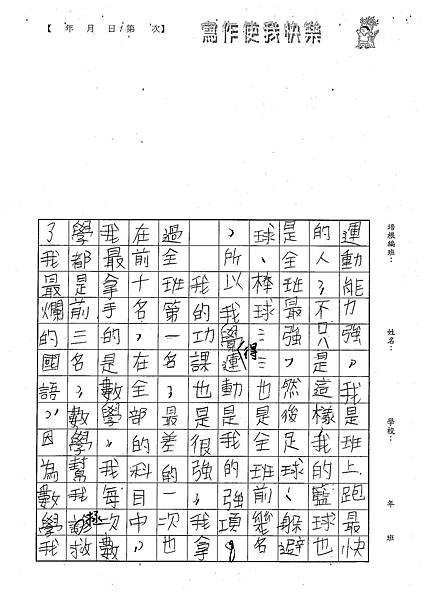 【 年 月 日 第 次】
寫作使我快樂
培根編班：
姓名：
學校：
年 班
運動能力強，我是班上跑最快
的人，不只是這樣我的籃球也
是全班最強，然後足球、躲避
球、棒球……也是全班前幾名
，所以我覺得運動是我的強項。
我的功課也是很強，我拿
過全班第一名，最差的一次也
在前十名，在全部的科目中，
我最拿手的是數學。我每次數
學都是前三名，數學幫我拯救
了我最爛的國語，因為數學我